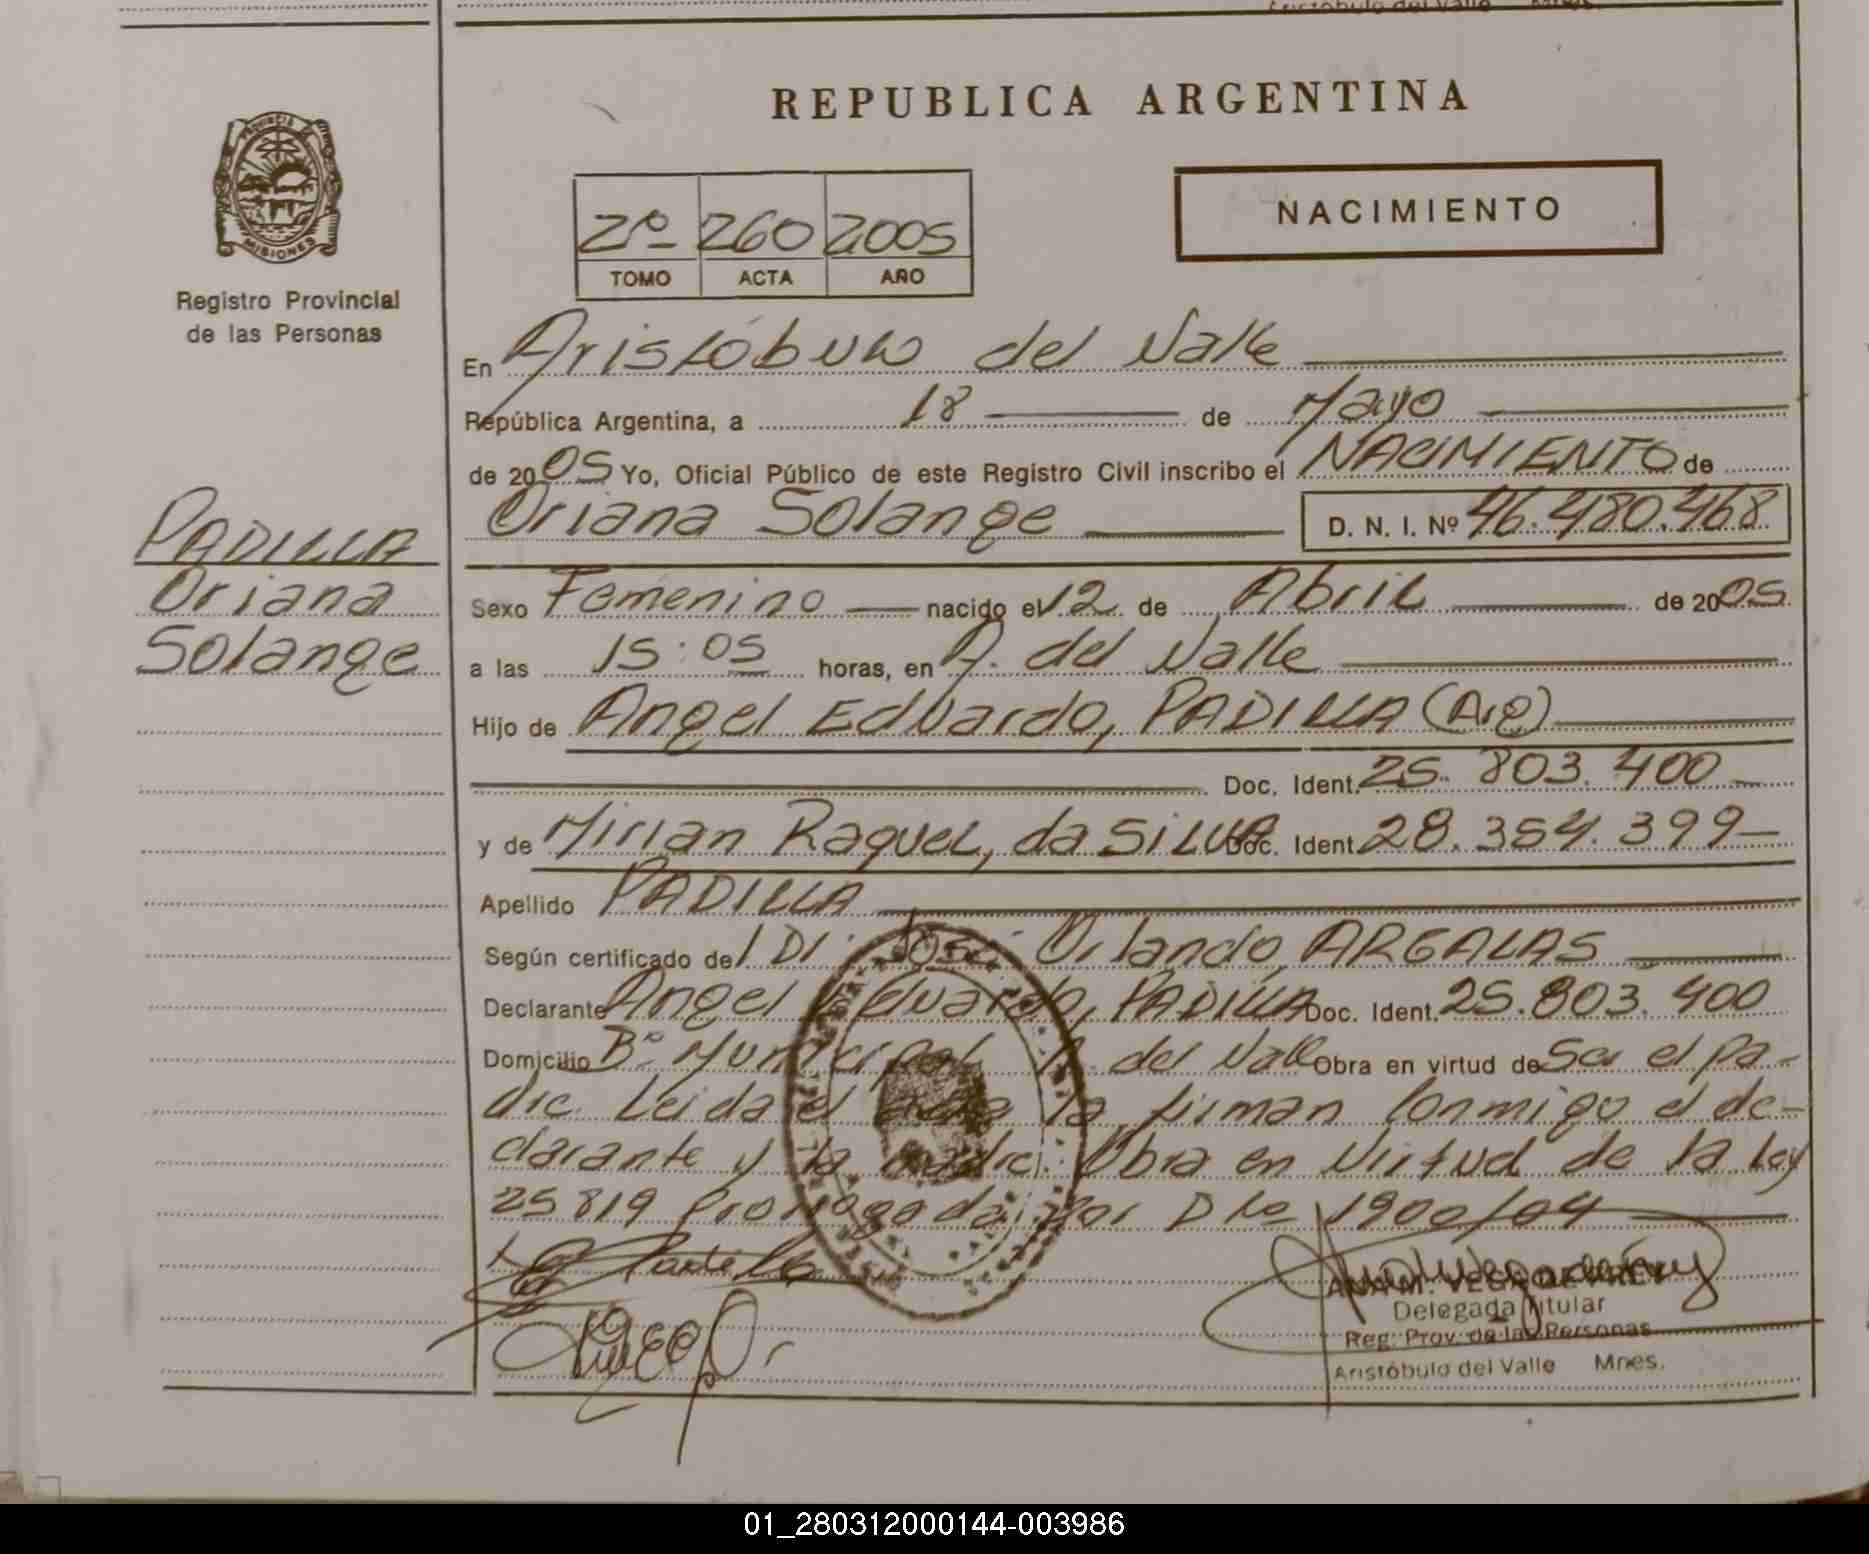 REPUBLICA ARGENTINA
PROVINCIA DE
MISIONES
Registro Provincial
de las Personas
2º 260 2005
TOMO ACTA AÑO
NACIMIENTO
En Aristóbulo del Valle
República Argentina, a 18 de Mayo
de 2005 Yo, Oficial Público de este Registro Civil inscribo el NACIMIENTO de
Oriana Solange D. N. I. Nº 46.480.468
PADILLA
Oriana
Solange
Sexo Femenino nacido el 12 de Abril de 2005
a las 15:05 horas, en A. del Valle
Hijo de Angel Eduardo, PADILLA (Arg)
Doc. Ident. 25.803.400
y de Mirian Raquel, da SILVA Doc. Ident. 28.354.399
Apellido PADILLA
Según certificado del Dr. José Orlando ARGALAS
Declarante Angel Eduardo, PADILLA Doc. Ident. 25.803.400
Domicilio Bº Municipal A. del Valle Obra en virtud de Ser el pa-
dre. Leida el acta la firman Conmigo el de-
clarante y la madre. Obra en virtud de la Ley
25819 prorrogada por Dto 1900/04
Padilla
ANA M. VEGA DE
Delegada Titular
Reg. Prov. de las Personas
Aristóbulo del Valle Mnes.
01_280312000144-003986